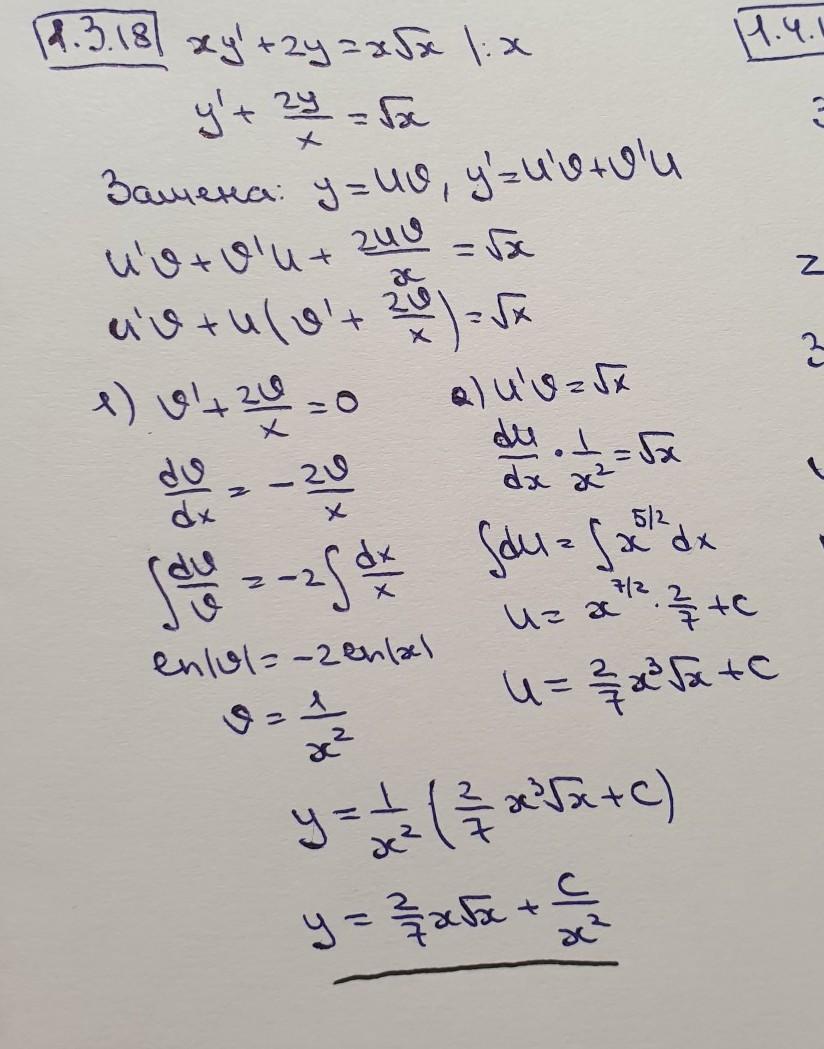 1.3.18 xy' + 2y = x√x |: x
y' + 2y/x = √x
Замена: y = uϑ, y' = u'ϑ + ϑ'u
u'ϑ + ϑ'u + 2uϑ/x = √x
u'ϑ + u(ϑ' + 2ϑ/x) = √x
1) ϑ' + 2ϑ/x = 0
dϑ/dx = -2ϑ/x
∫dϑ/ϑ = -2∫dx/x
ln|ϑ| = -2ln|x|
ϑ = 1/x²
2) u'ϑ = √x
du/dx · 1/x² = √x
∫du = ∫x^(5/2) dx
u = x^(7/2) · 2/7 + C
u = 2/7 x³√x + C
y = 1/x² (2/7 x³√x + C)
y = 2/7 x√x + C/x²